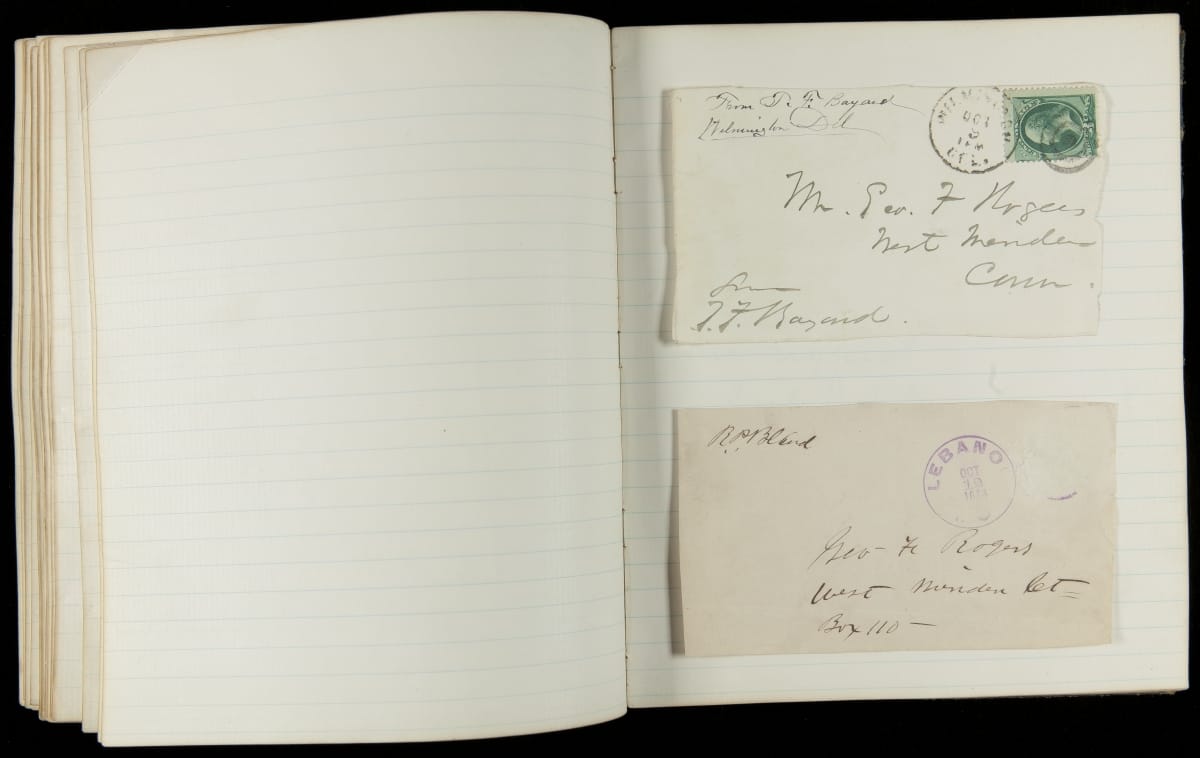 From T. F. Bayard
Wilmington Del
WILMINGTON
OCT
DEL.
Mr. Geo. F Rogers
West Meriden
Conn.
from
T. F. Bayard.
R. P. Bland
LEBANO
OCT
Geo F Rogers
West Meriden Ct
Box 110